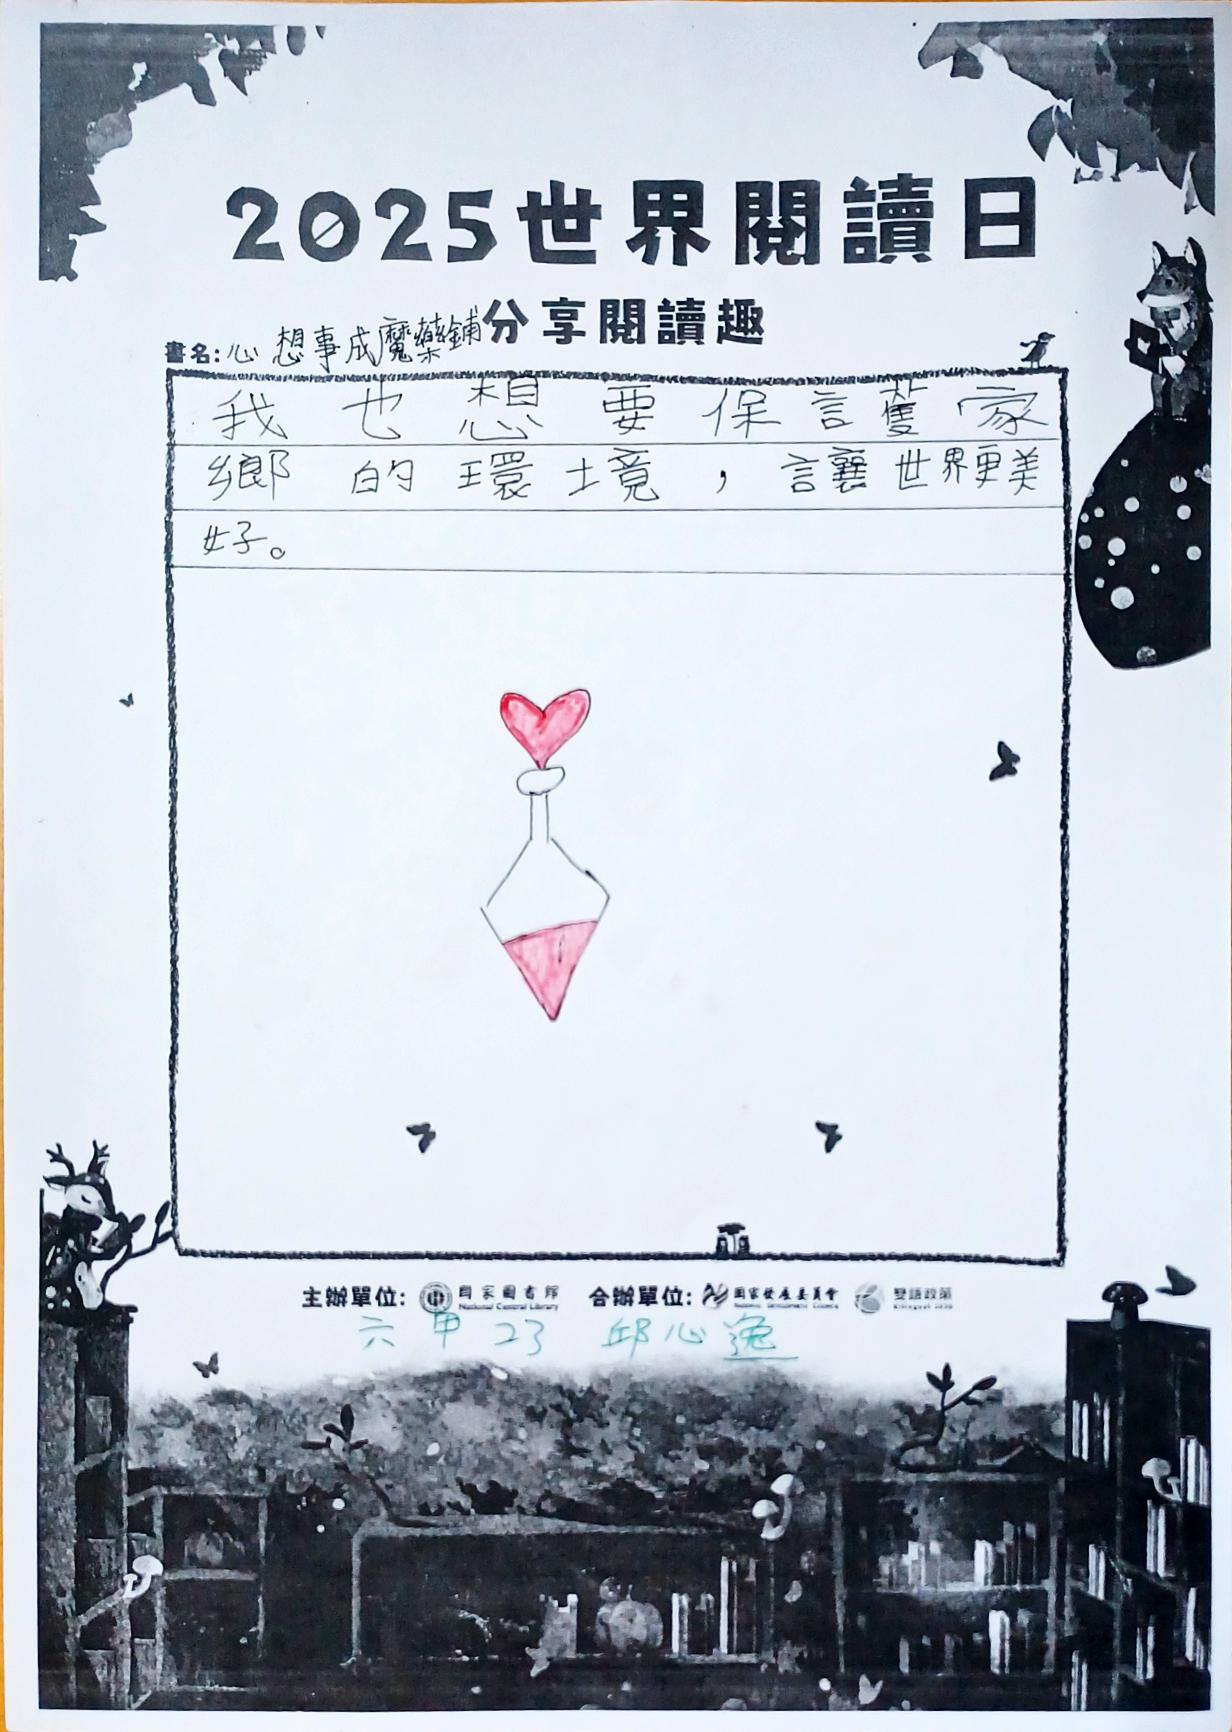 2025世界閱讀日
分享閱讀趣
書名:心想事成魔藥鋪
我也想要保護家
鄉的環境，讓世界更美
好。
主辦單位: 國家圖書館 National Central Library 合辦單位: 國家發展委員會 National Development Council 雙語政策 Bilingual 2030
六甲 23 邱心逸